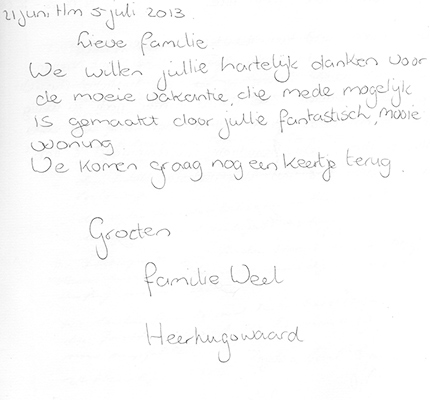 21 juni t/m 5 juli 2013
Lieve familie
We willen jullie hartelijk danken voor
de moeie vakantie, die mede mogelijk
is gemaakt door jullie fantastisch, mooie
woning.
We komen graag nog een keertje terug.
Groeten
familie Weel
Heerhugowaard